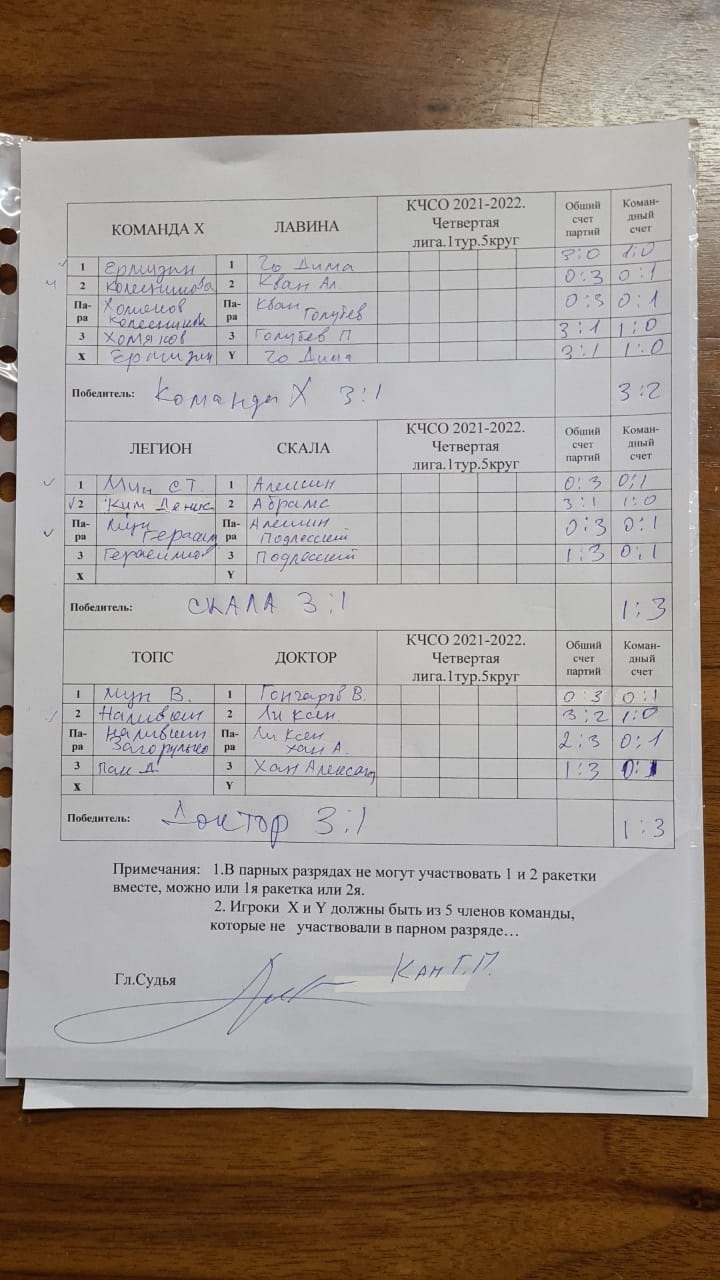 КОМАНДА Х ЛАВИНА КЧСО 2021-2022. Четвертая лига.1тур.5круг Общий счет партий Коман-дный счет
1 Ермизин 1 Чо Дима 3:0 1:0
2 Колесникова 2 Кван Ал. 0:3 0:1
Па-ра Хомяков Колесников Па-ра Кван Голубев 0:3 0:1
3 Хомяков 3 Голубев П 3:1 1:0
Х Ермизин Y Чо Дима 3:1 1:0
Победитель: Команда Х 3:1 3:2
ЛЕГИОН СКАЛА КЧСО 2021-2022. Четвертая лига.1тур.5круг Общий счет партий Коман-дный счет
1 Мун СТ. 1 Алексин 0:3 0:1
2 Ким Денис 2 Абрамс 3:1 1:0
Па-ра Мун Герасим Па-ра Подлесский 0:3 0:1
3 Герасимов 3 Подлесский 1:3 0:1
Х Y
Победитель: СКАЛА 3:1 1:3
ТОПС ДОКТОР КЧСО 2021-2022. Четвертая лига.1тур.5круг Общий счет партий Коман-дный счет
1 Мун В. 1 Гончаров В. 0:3 0:1
2 Наливкин 2 Ли Ксен. 3:2 1:0
Па-ра Наливкин Загорулько Па-ра Ли Ксен Хан А. 2:3 0:1
3 Пак Д 3 Хан Александ 1:3 0:1
Х Y
Победитель: Доктор 3:1 1:3
Примечания: 1.В парных разрядах не могут участвовать 1 и 2 ракетки
вместе, можно или 1я ракетка или 2я.
2. Игроки Х и Y должны быть из 5 членов команды,
которые не участвовали в парном разряде…
Гл.Судья Кан Г.П.